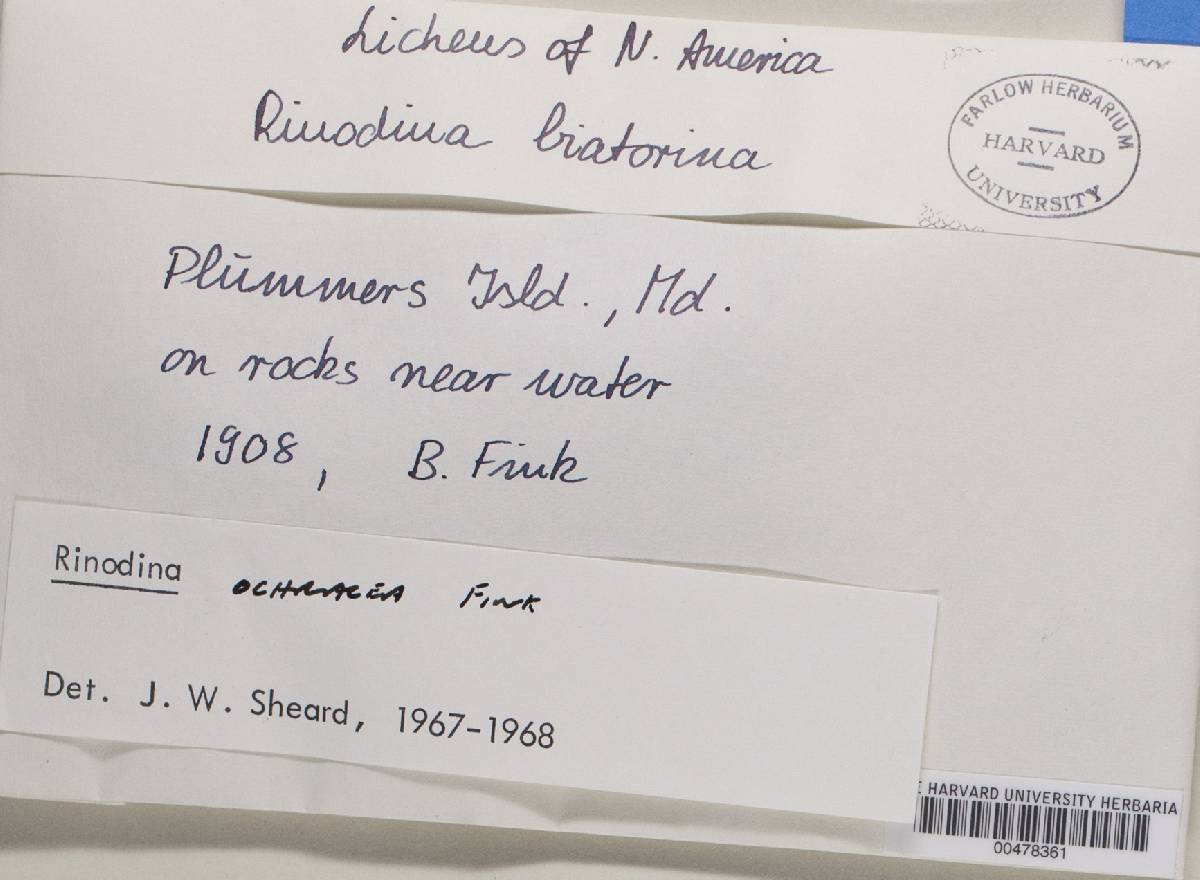 Lichens of N. America
Rinodina biatorina
FARLOW HERBARIUM
HARVARD
UNIVERSITY
Plummers Isld., Md.
on rocks near water
1908, B. Fink
Rinodina OCHRACEA FINK
Det. J. W. Sheard, 1967-1968
HARVARD UNIVERSITY HERBARIA
00478361